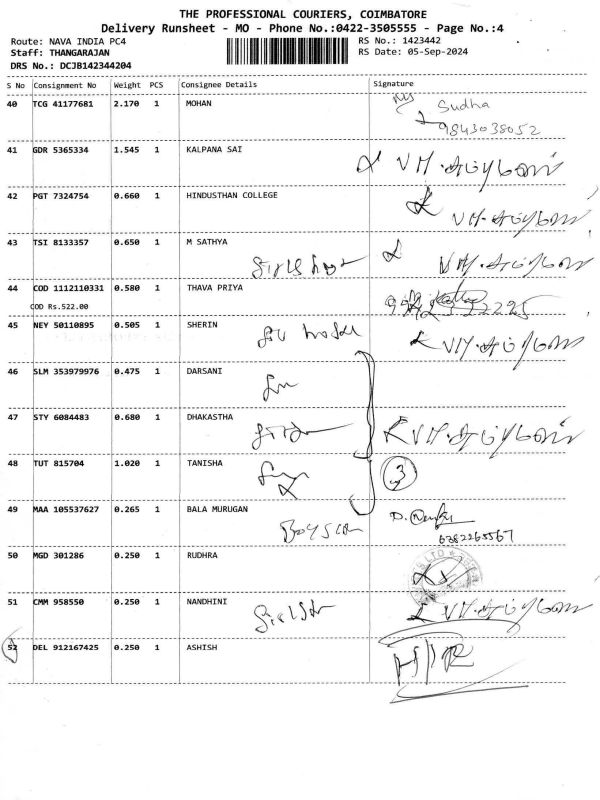 THE PROFESSIONAL COURIERS, COIMBATORE
Delivery Runsheet - MO - Phone No.:0422-3505555 - Page No.:4
Route: NAVA INDIA PC4 RS No.: 1423442
Staff: THANGARAJAN RS Date: 05-Sep-2024
DRS No.: DCJB142344204
S No Consignment No Weight PCS Consignee Details Signature
40 TCG 41177681 2.170 1 MOHAN Sudha
9843038052
41 GDR 5365334 1.545 1 KALPANA SAI
42 PGT 7324754 0.660 1 HINDUSTHAN COLLEGE
43 TSI 8133357 0.650 1 M SATHYA
44 COD 1112110331 0.580 1 THAVA PRIYA
COD Rs.522.00
45 NEY 50110895 0.505 1 SHERIN
46 SLM 353979976 0.475 1 DARSANI
47 STY 6084483 0.680 1 DHAKASTHA
48 TUT 815704 1.020 1 TANISHA 3
49 MAA 105537627 0.265 1 BALA MURUGAN
6382265567
50 MGD 301286 0.250 1 RUDHRA
51 CMM 958550 0.250 1 NANDHINI
52 DEL 912167425 0.250 1 ASHISH